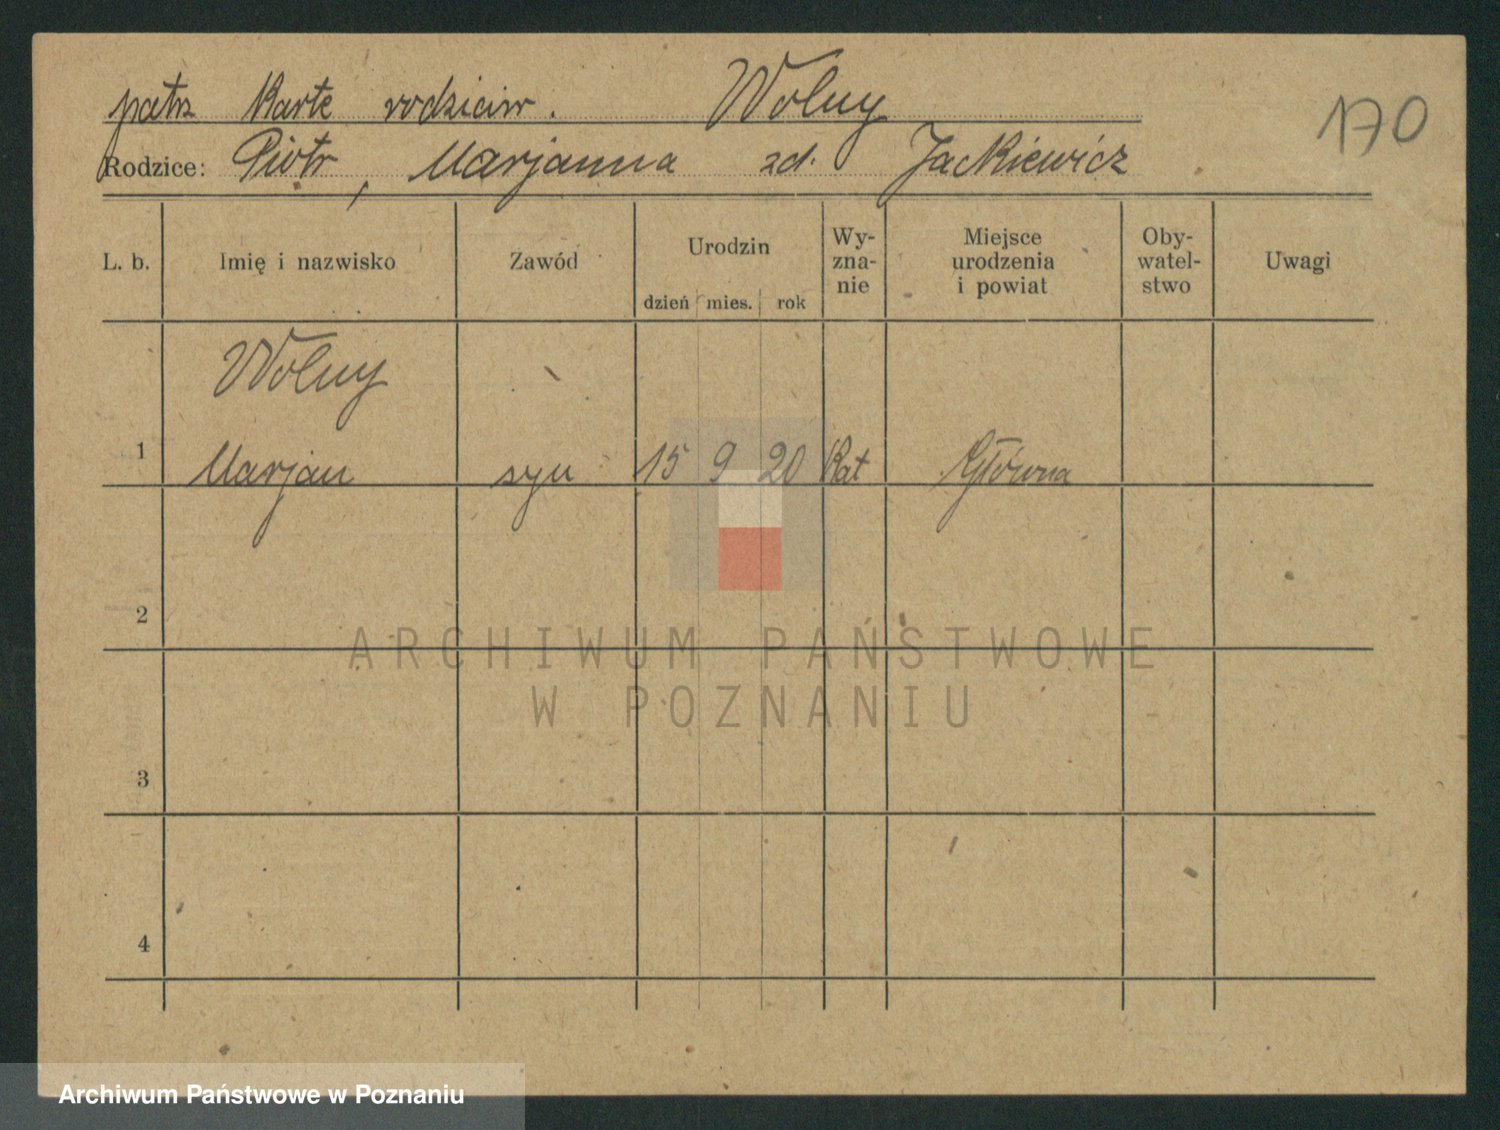 patrz Karte rodziców. Wolny
170
Rodzice: Piotr, Marjanna zd. Jackiewicz
L. b. Imię i nazwisko Zawód Urodzin dzień mies. rok Wy-zna-nie Miejsce urodzenia i powiat Oby-watel-stwo Uwagi
Wolny
1 Marjan syn 15 9 20 Kat Główna
2
ARCHIWUM PAŃSTWOWE
W POZNANIU
3
4
Archiwum Państwowe w Poznaniu